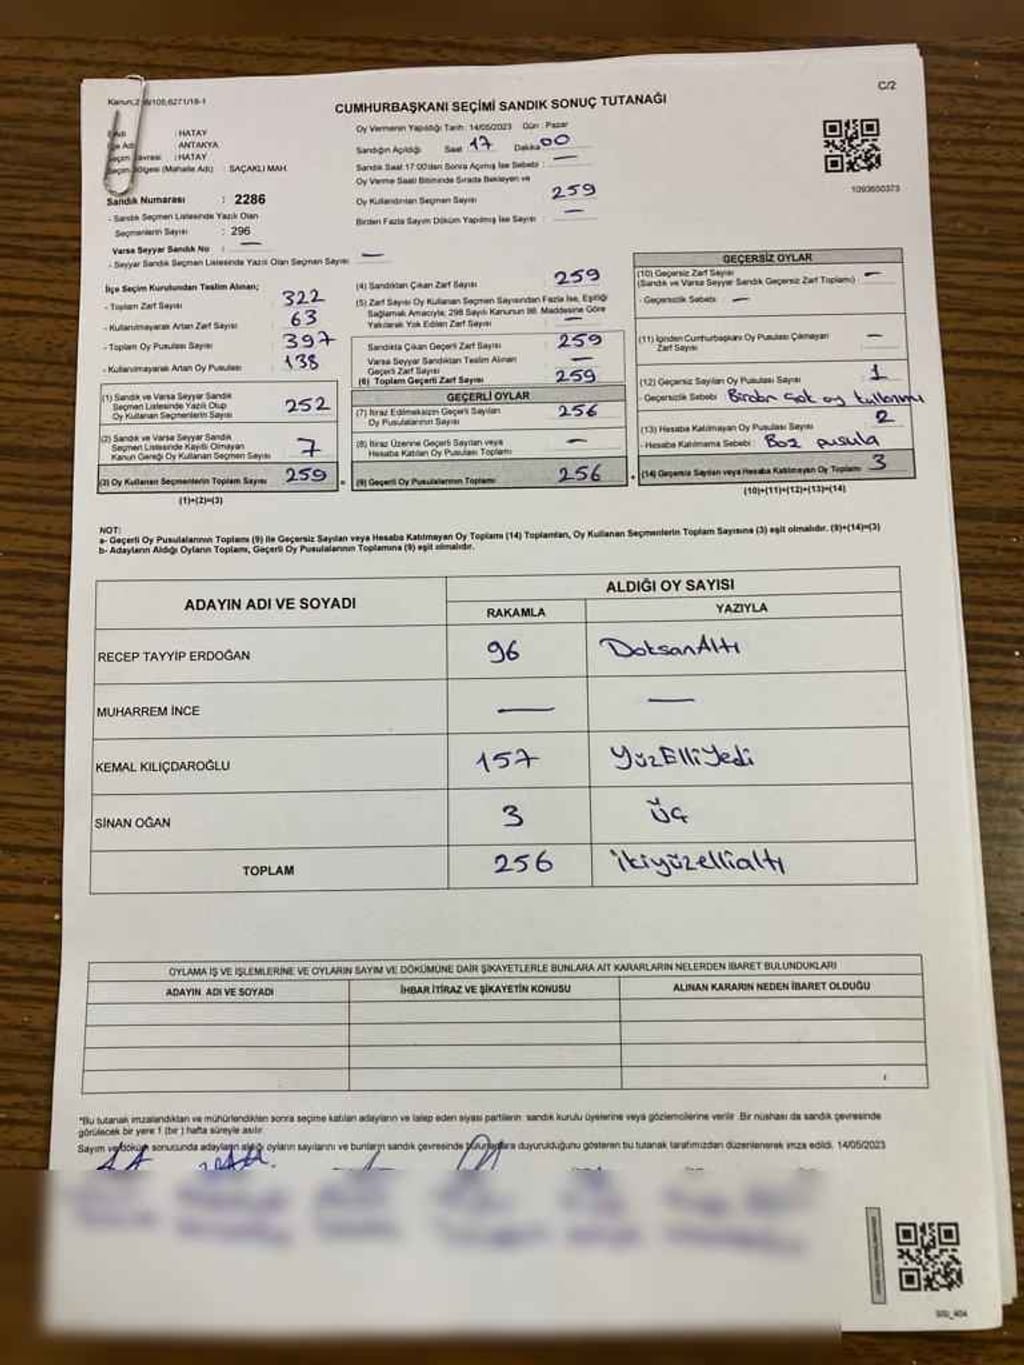 C/2
CUMHURBAŞKANI SEÇİMİ SANDIK SONUÇ TUTANAĞI
: HATAY
: ANTAKYA
: HATAY
: SAÇAKLI MAH.
Sandık Numarası : 2286
- Sandık Seçmen Listesinde Yazılı Olan
Seçmenlerin Sayısı : 296
Varsa Seyyar Sandık No : —
- Seyyar Sandık Seçmen Listesinde Yazılı Olan Seçmen Sayısı : —
Oy Vermenin Yapıldığı Tarih: 14/05/2023 Gün : Pazar
Sandığın Açıldığı Saat 17 Dakika 00
Sandık Saat 17:00'den Sonra Açılmış İse Sebebi : —
Oy Verme Saati Bitiminde Sırada Bekleyen ve
Oy Kullandırılan Seçmen Sayısı 259
Birden Fazla Sayım Döküm Yapılmış İse Sayısı : —
1093600373
İlçe Seçim Kurulundan Teslim Alınan;
- Toplam Zarf Sayısı 322
- Kullanılmayarak Artan Zarf Sayısı 63
- Toplam Oy Pusulası Sayısı 397
- Kullanılmayarak Artan Oy Pusulası 138
(1) Sandık ve Varsa Seyyar Sandık
Seçmen Listesinde Yazılı Olup
Oy Kullanan Seçmenlerin Sayısı 252
(2) Sandık ve Varsa Seyyar Sandık
Seçmen Listesinde Kayıtlı Olmayan
Kanun Gereği Oy Kullanan Seçmen Sayısı 7
(3) Oy Kullanan Seçmenlerin Toplam Sayısı 259
(1)+(2)=(3)
(4) Sandıktan Çıkan Zarf Sayısı 259
(5) Zarf Sayısı Oy Kullanan Seçmen Sayısından Fazla İse, Eşitliği
Sağlamak Amacıyla; 298 Sayılı Kanunun 98. Maddesine Göre
Yakılarak Yok Edilen Zarf Sayısı —
Sandıkta Çıkan Geçerli Zarf Sayısı 259
Varsa Seyyar Sandıktan Teslim Alınan
Geçerli Zarf Sayısı —
(6) Toplam Geçerli Zarf Sayısı 259
GEÇERLİ OYLAR
(7) İtiraz Edilmeksizin Geçerli Sayılan
Oy Pusulalarının Sayısı 256
(8) İtiraz Üzerine Geçerli Sayılan veya
Hesaba Katılan Oy Pusulası Toplamı —
(9) Geçerli Oy Pusulalarının Toplamı 256
GEÇERSİZ OYLAR
(10) Geçersiz Zarf Sayısı —
(Sandık ve Varsa Seyyar Sandık Geçersiz Zarf Toplamı)
- Geçersizlik Sebebi: —
(11) İçinden Cumhurbaşkanı Oy Pusulası Çıkmayan
Zarf Sayısı —
(12) Geçersiz Sayılan Oy Pusulası Sayısı 1
- Geçersizlik Sebebi Birden çok oy kullanımı
(13) Hesaba Katılmayan Oy Pusulası Sayısı 2
- Hesaba Katılmama Sebebi: Boz pusula
(14) Geçersiz Sayılan veya Hesaba Katılmayan Oy Toplamı 3
(10)+(11)+(12)+(13)=(14)
NOT:
a- Geçerli Oy Pusulalarının Toplamı (9) ile Geçersiz Sayılan veya Hesaba Katılmayan Oy Toplamı (14) Toplamları, Oy Kullanan Seçmenlerin Toplam Sayısına (3) eşit olmalıdır. (9)+(14)=(3)
b- Adayların Aldığı Oyların Toplamı, Geçerli Oy Pusulalarının Toplamına (9) eşit olmalıdır.
ADAYIN ADI VE SOYADI
ALDIĞI OY SAYISI
RAKAMLA YAZIYLA
RECEP TAYYİP ERDOĞAN 96 DoksanAltı
MUHARREM İNCE — —
KEMAL KILIÇDAROĞLU 157 YüzElliYedi
SİNAN OĞAN 3 Üç
TOPLAM 256 ikiyüzellialtı
OYLAMA İŞ VE İŞLEMLERİNE VE OYLARIN SAYIM VE DÖKÜMÜNE DAİR ŞİKAYETLERLE BUNLARA AİT KARARLARIN NELERDEN İBARET BULUNDUKLARI
ADAYIN ADI VE SOYADI İHBAR İTİRAZ VE ŞİKAYETİN KONUSU ALINAN KARARIN NEDEN İBARET OLDUĞU
*Bu tutanak imzalandıktan ve mühürlendikten sonra seçime katılan adayların ve talep eden siyasi partilerin sandık kurulu üyelerine veya gözlemcilerine verilir. Bir nüshası da sandık çevresinde
görülecek bir yere 1 (bir) hafta süreyle asılır.
Sayım ve döküm sonucunda adayların aldığı oyların sayılarını ve bunların sandık çevresinde duyurulduğunu gösteren bu tutanak tarafımızdan düzenlenerek imza edildi. 14/05/2023